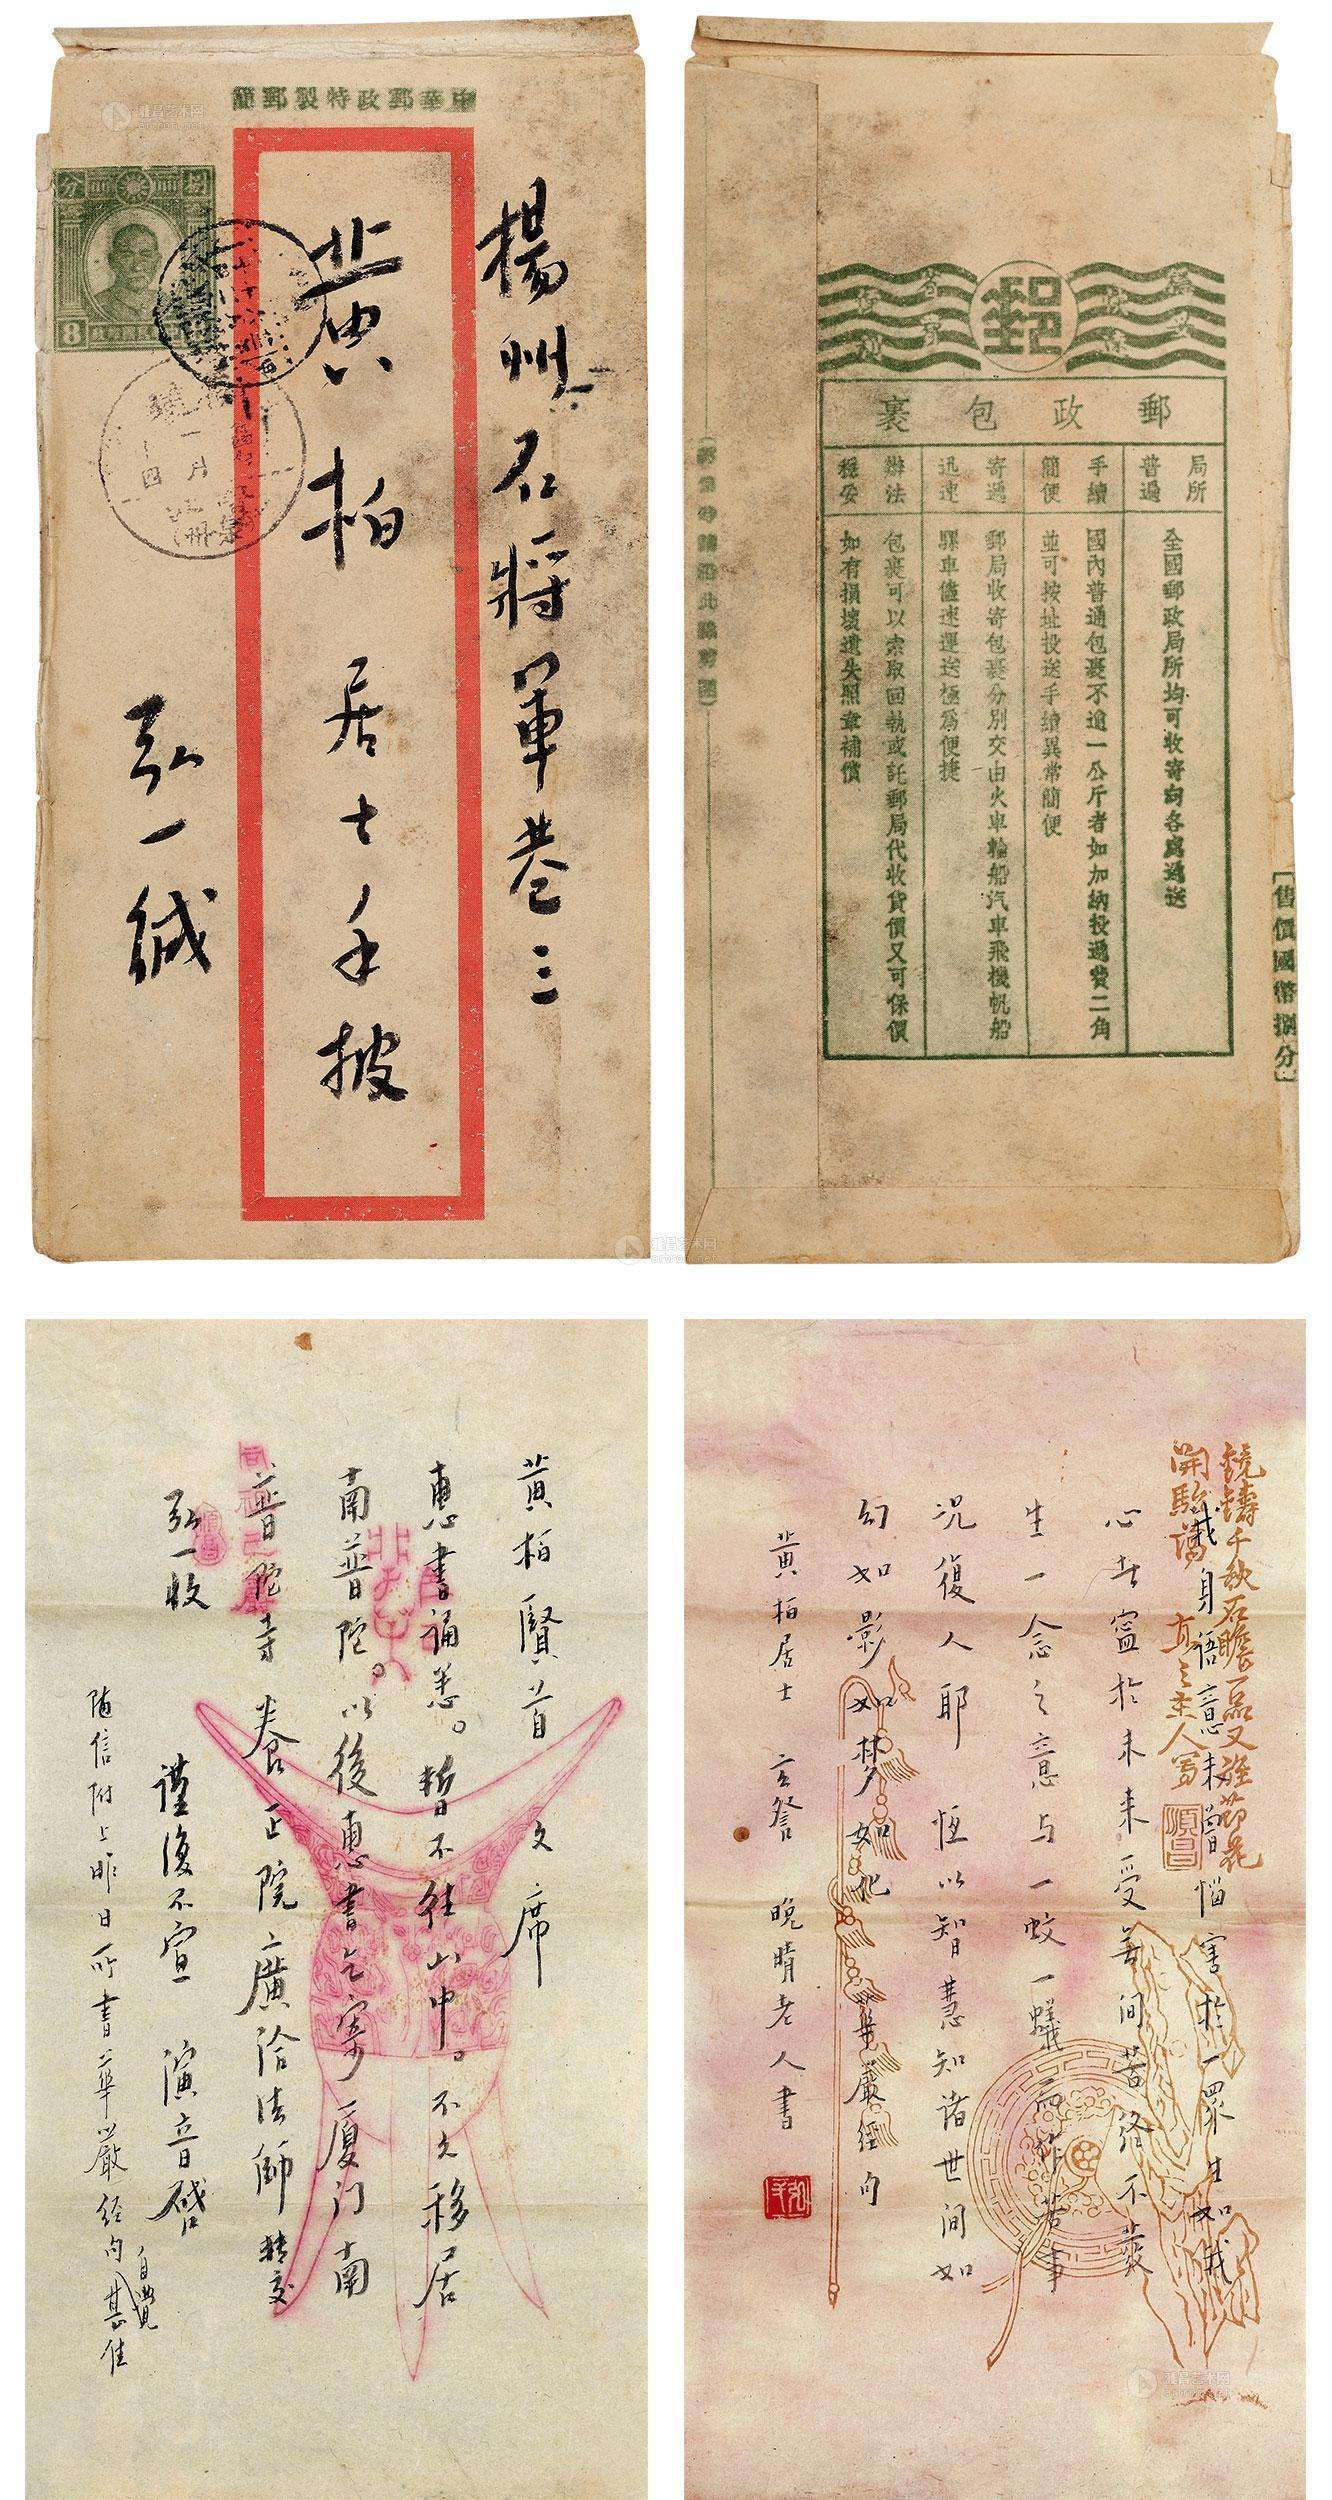 中華郵政特製郵簡
分 捌
8
揚州石將軍巷三
黃柏居士手披
弘一緘
郵
郵政包裹
局所普遍
全國郵政局所均可收寄向各處遞送
手續簡便
國內普通包裹不逾一公斤者如加納投遞費二角
並可按址投送手續異常簡便
寄遞迅速
郵局收寄包裹分別交由火車輪船汽車飛機帆船
騾車儘速運送極為便捷
辦法穩妥
包裹可以索取回執或託郵局代收貨價又可保價
如有損壞遺失照章補償
售價國幣捌分
黃柏賢首 文席
惠書誦悉。暫不往山中。不久移居
南普陀。以後惠書乞寄廈门南
普陀寺 養正院 廣洽法師 轉交
弘一收 謹復不宣 演音啓
随信附上昨日所書華嚴經句自覺甚佳
我身語意未曾惱害於一眾生如我
心安寧於未來受無间苦終不
生一念之意与一蚊一蟻而作苦事
況復人耶 恆以智慧知諸世间如
幻如影如梦如化 華嚴經句
黃柏居士 玄詧 晚晴老人書